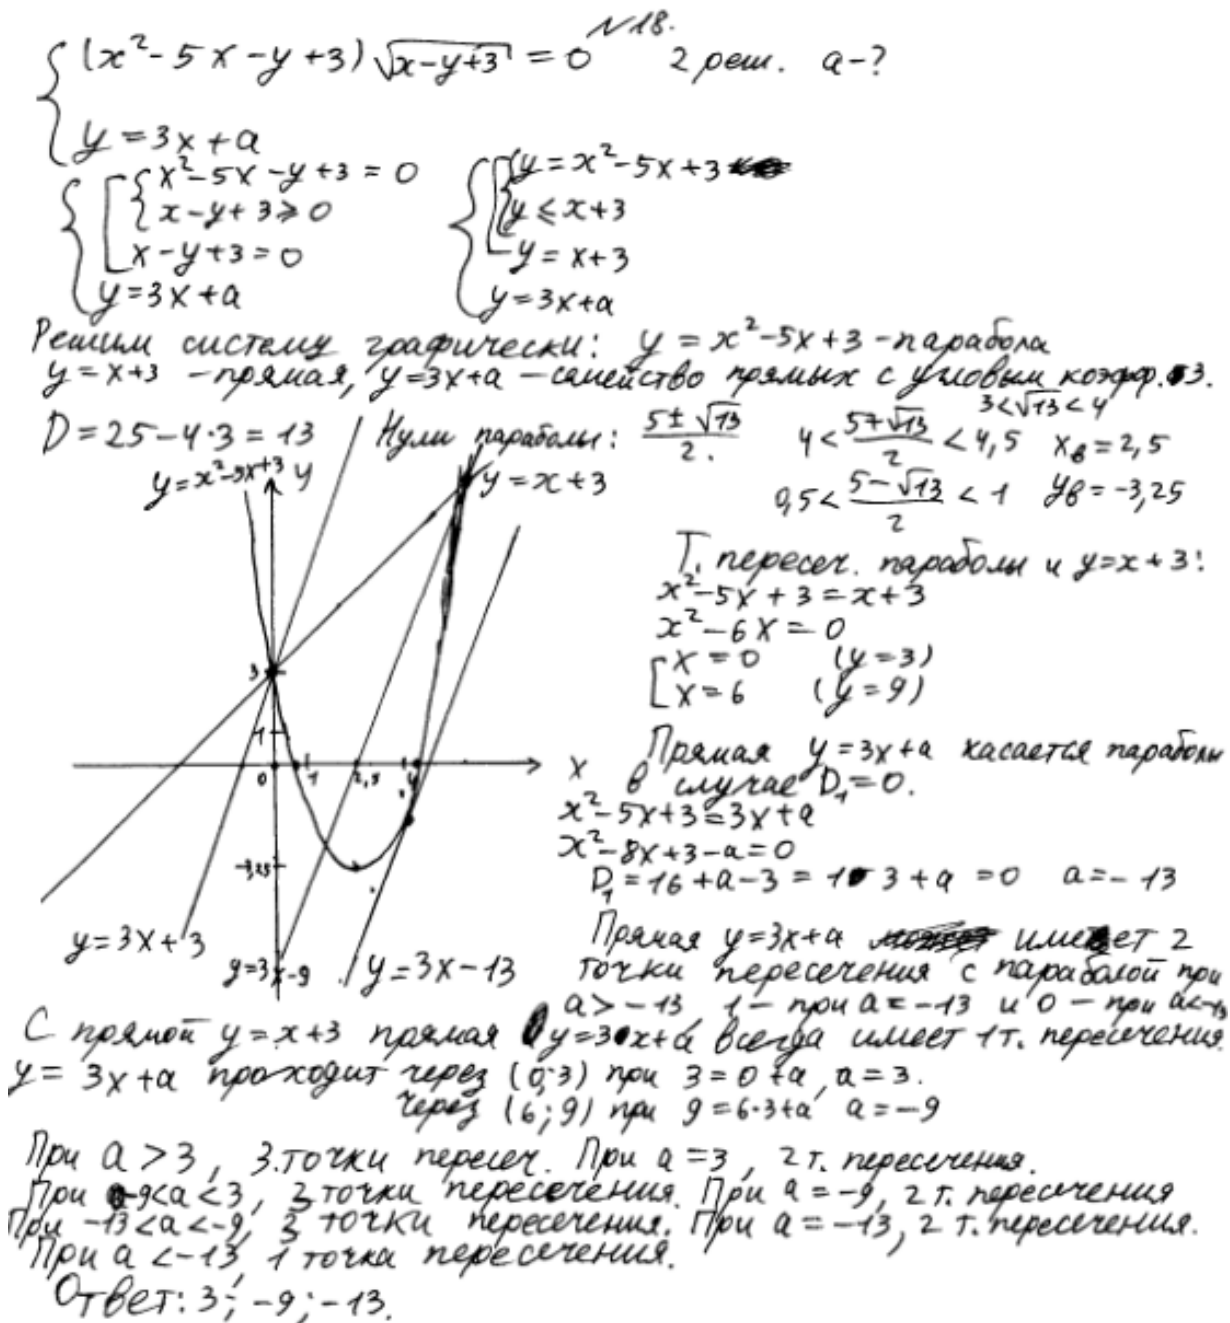 N18.
(x² - 5x - y + 3) √(x-y+3) = 0 2 реш. a-?
y = 3x + a
x² - 5x - y + 3 = 0 y = x² - 5x + 3
x - y + 3 ⩾ 0 y ⩽ x + 3
x - y + 3 = 0 y = x + 3
y = 3x + a y = 3x + a
Решим систему графически: y = x² - 5x + 3 - парабола
y = x+3 - прямая, y = 3x + a - семейство прямых с угловым коэфф. 3.
D = 25 - 4·3 = 13 Нули параболы: (5 ± √13)/2. 3 < √13 < 4
4 < (5+√13)/2 < 4,5 x_в = 2,5
0,5 < (5-√13)/2 < 1 y_в = -3,25
y = x² - 5x + 3 y
y = x + 3
3
1
0 1 2,5 4 x
-3,25
y = 3x + 3
y = 3x - 9
y = 3x - 13
Т. пересеч. параболы и y = x + 3:
x² - 5x + 3 = x + 3
x² - 6x = 0
x = 0 (y = 3)
x = 6 (y = 9)
Прямая y = 3x + a касается параболы
в случае D₁ = 0.
x² - 5x + 3 = 3x + a
x² - 8x + 3 - a = 0
D₁ = 16 + a - 3 = 13 + a = 0 a = - 13
Прямая y = 3x + a имеет 2
точки пересечения с параболой при
a > -13, 1 - при a = -13 и 0 - при a < -13
С прямой y = x + 3 прямая y = 3x + a всегда имеет 1 т. пересечения.
y = 3x + a проходит через (0;3) при 3 = 0 + a, a = 3.
через (6; 9) при 9 = 6·3 + a, a = -9
При a > 3, 3 точки пересеч. При a = 3, 2 т. пересечения.
При -9 < a < 3, 2 точки пересечения. При a = -9, 2 т. пересечения
При -13 < a < -9, 3 точки пересечения. При a = -13, 2 т. пересечения.
При a < -13, 1 точка пересечения.
Ответ: 3; -9; -13.